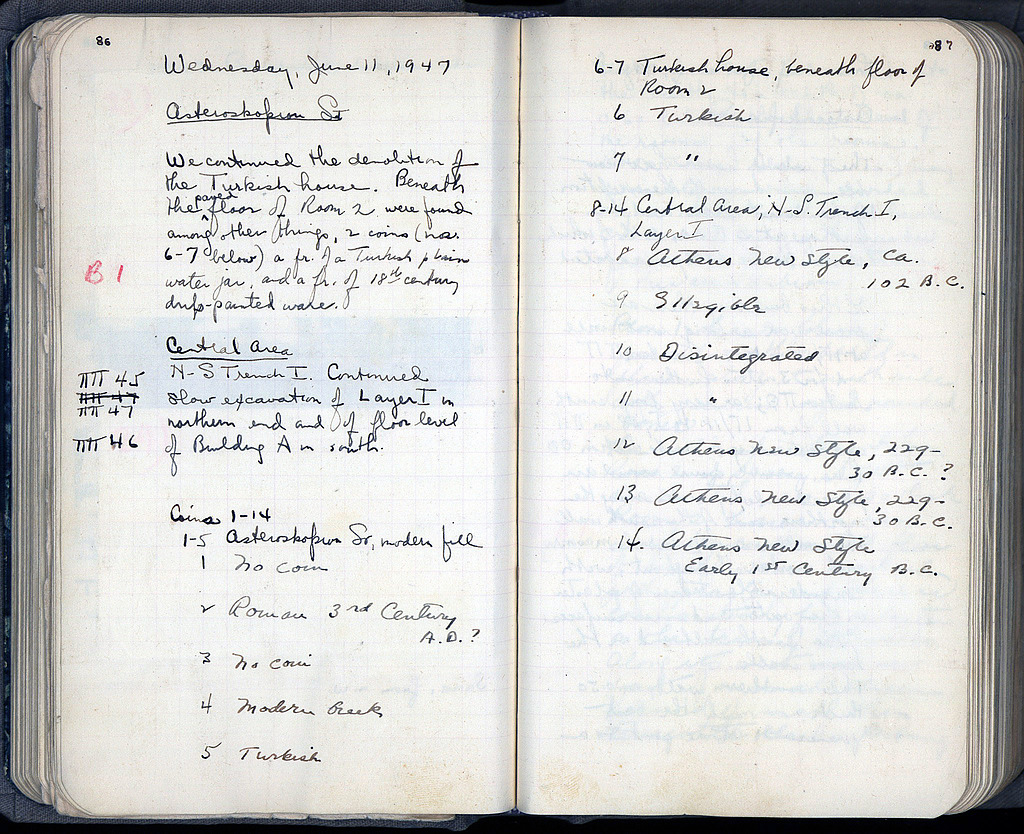 86
Wednesday, June 11, 1947
Asteroskopion St
We continued the demolition of
the Turkish house. Beneath
the paved floor of Room 2 were found
among other things, 2 coins (nos.
6-7 below) a fr. of a Turkish plain
B 1
water jar, and a fr. of 18th century
drip-painted ware.
Central Area
ΠΠ 45
N-S Trench I. Continued
ΠΠ 47
slow excavation of Layer I in
ΠΠ 47
northern end and of floor level
ΠΠ 46
of Building A in south.
Coins 1-14
1-5 Asteroskopion St, modern fill
1 No coin
2 Roman 3rd Century
A.D.?
3 No coin
4 Modern Greek
5 Turkish
87
6-7 Turkish house, beneath floor of
Room 2
6 Turkish
7 "
8-14 Central Area, N-S. Trench I,
Layer I
8 Athens New Style, ca.
102 B.C.
9 Illegible
10 Disintegrated
11 "
12 Athens New Style, 229-
30 B.C.?
13 Athens New Style, 229-
30 B.C.
14. Athens New Style
Early 1st Century B.C.